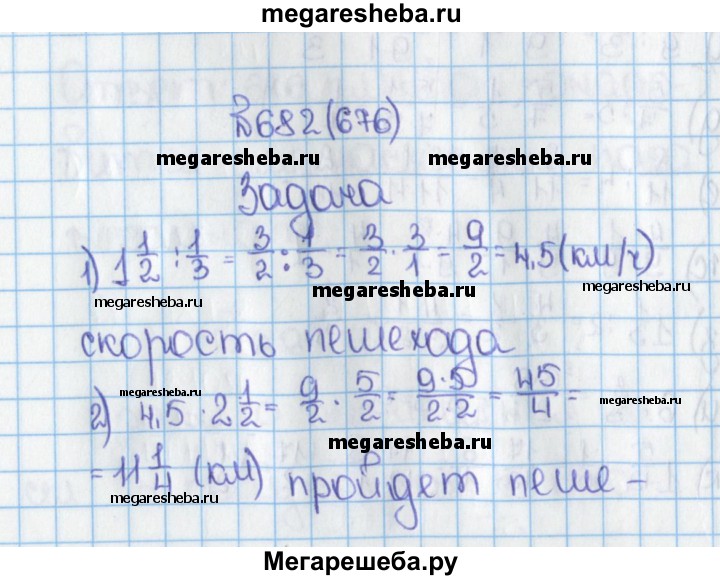 megaresheba.ru
№682(676)
megaresheba.ru megaresheba.ru
Задача
1) 1 1/2 : 1/3 = 3/2 : 1/3 = 3/2 · 3/1 = 9/2 = 4,5 (км/ч)
megaresheba.ru megaresheba.ru
скорость пешехода
megaresheba.ru
2) 4,5 · 2 1/2 = 9/2 · 5/2 = 9·5/2·2 = 45/4 =
megaresheba.ru
megaresheba.ru
= 11 1/4 (км) пройдет пеше –
megaresheba.ru
Мегарешеба.ру